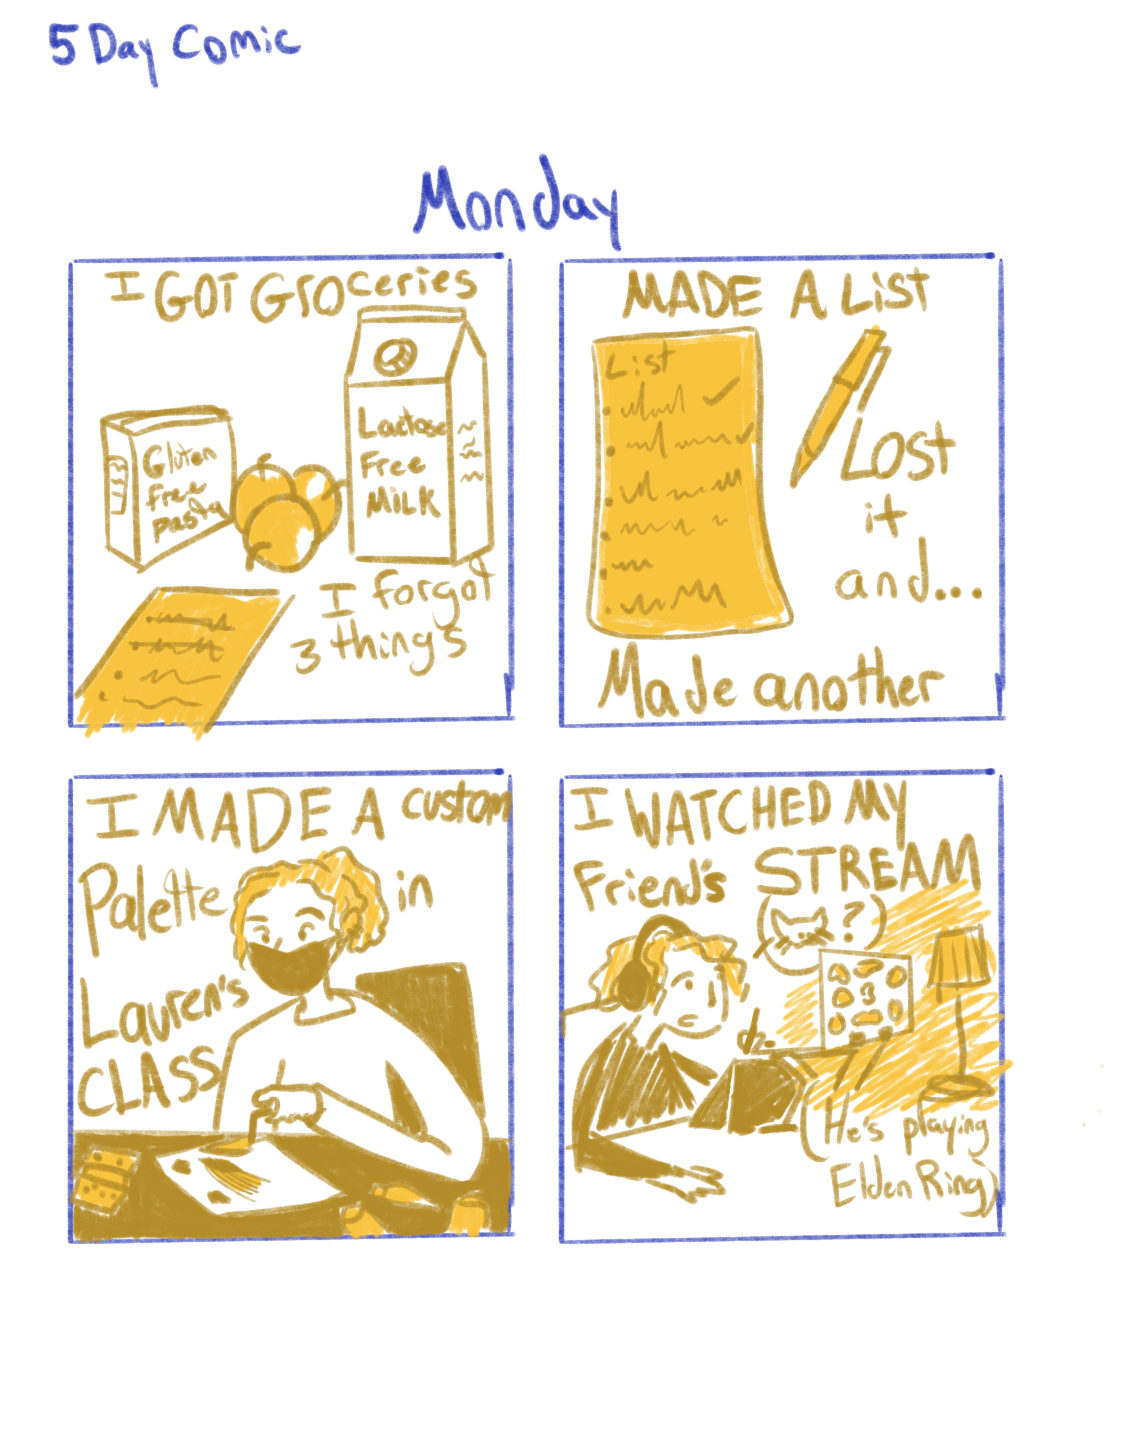 5 Day Comic
Monday
I GOT GROceries
Gluten
free
pasta
Lactose
Free
MiLK
I forgot
3 things
MADE A LiST
List
Lost
it
and...
Made another
I MADE A custom
Palette in
Lauren's
CLASS
I WATCHED My
Friend's STREAM
(?)
(He's playing
Elden Ring)